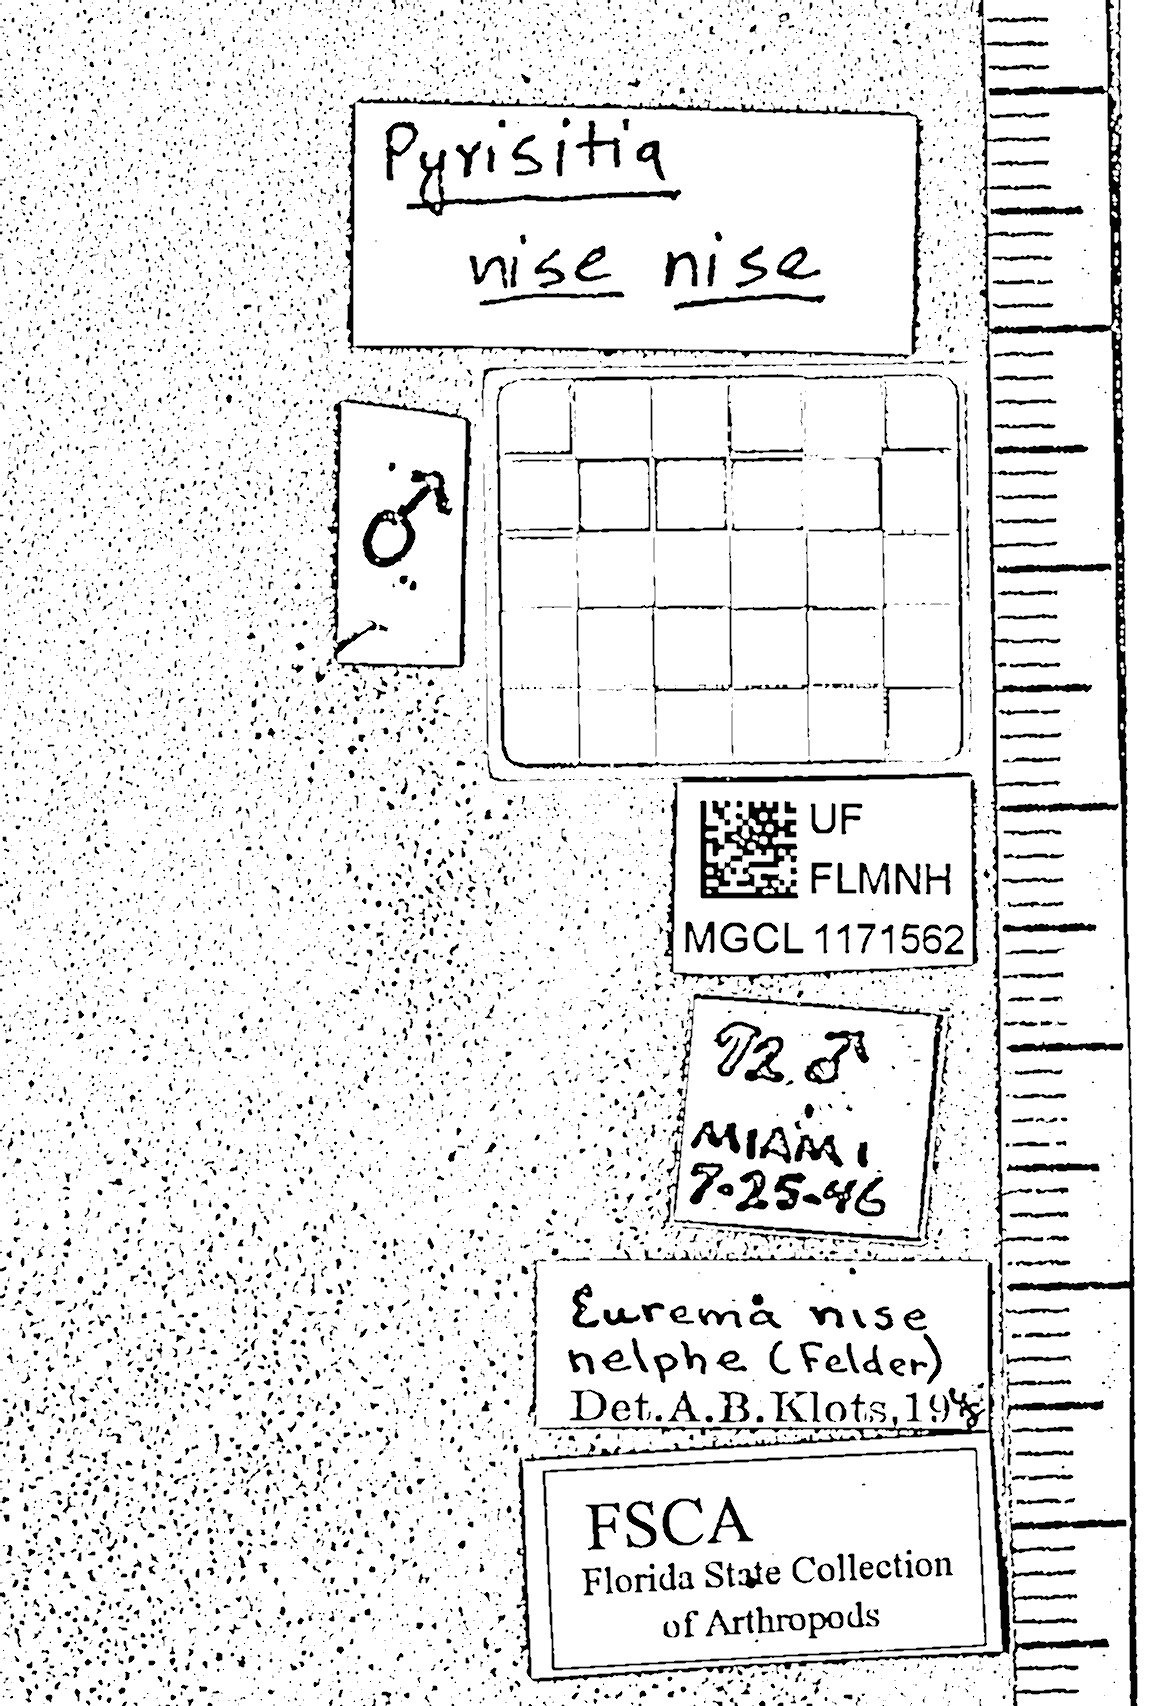 Pyrisitia
nise nise
♂
UF
FLMNH
MGCL 1171562
72 ♂
MIAMI
7-25-46
Eurema nise
nelphe (Felder)
Det. A. B. Klots, 1948
FSCA
Florida State Collection
of Arthropods